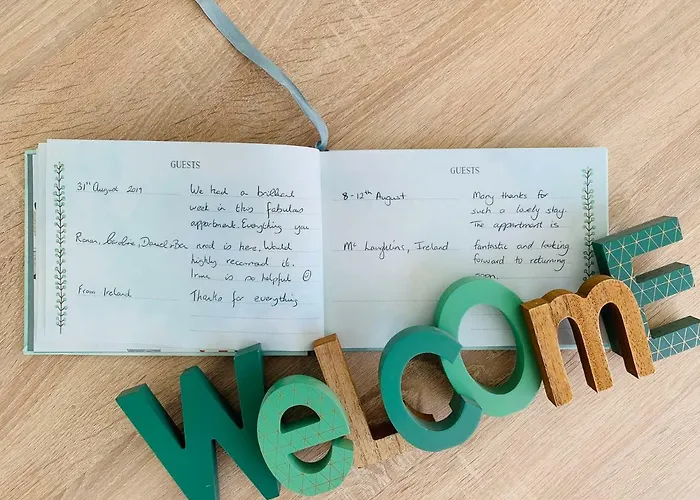 GUESTS
31st August 2019
We had a brilliant
week in this fabulous
appartment. Everything you
Ronan, Caroline, Daniel & Ben
need is here. Would
highly recommend it.
Irma is so helpful ☺
From Ireland
Thanks for everything
GUESTS
8-12th August
Many thanks for
such a lovely stay.
The appartment is
Mc Laughlins, Ireland
fantastic and looking
forward to returning
soon.
WeLcOmE